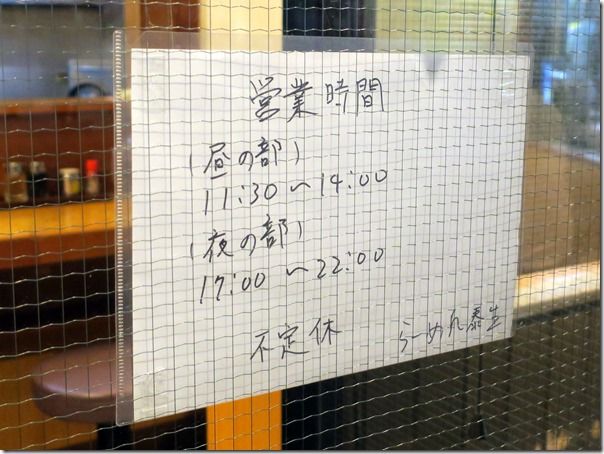 営業時間
(昼の部)
11:30～14:00
(夜の部)
17:00～22:00
不定休 らーめん泰生